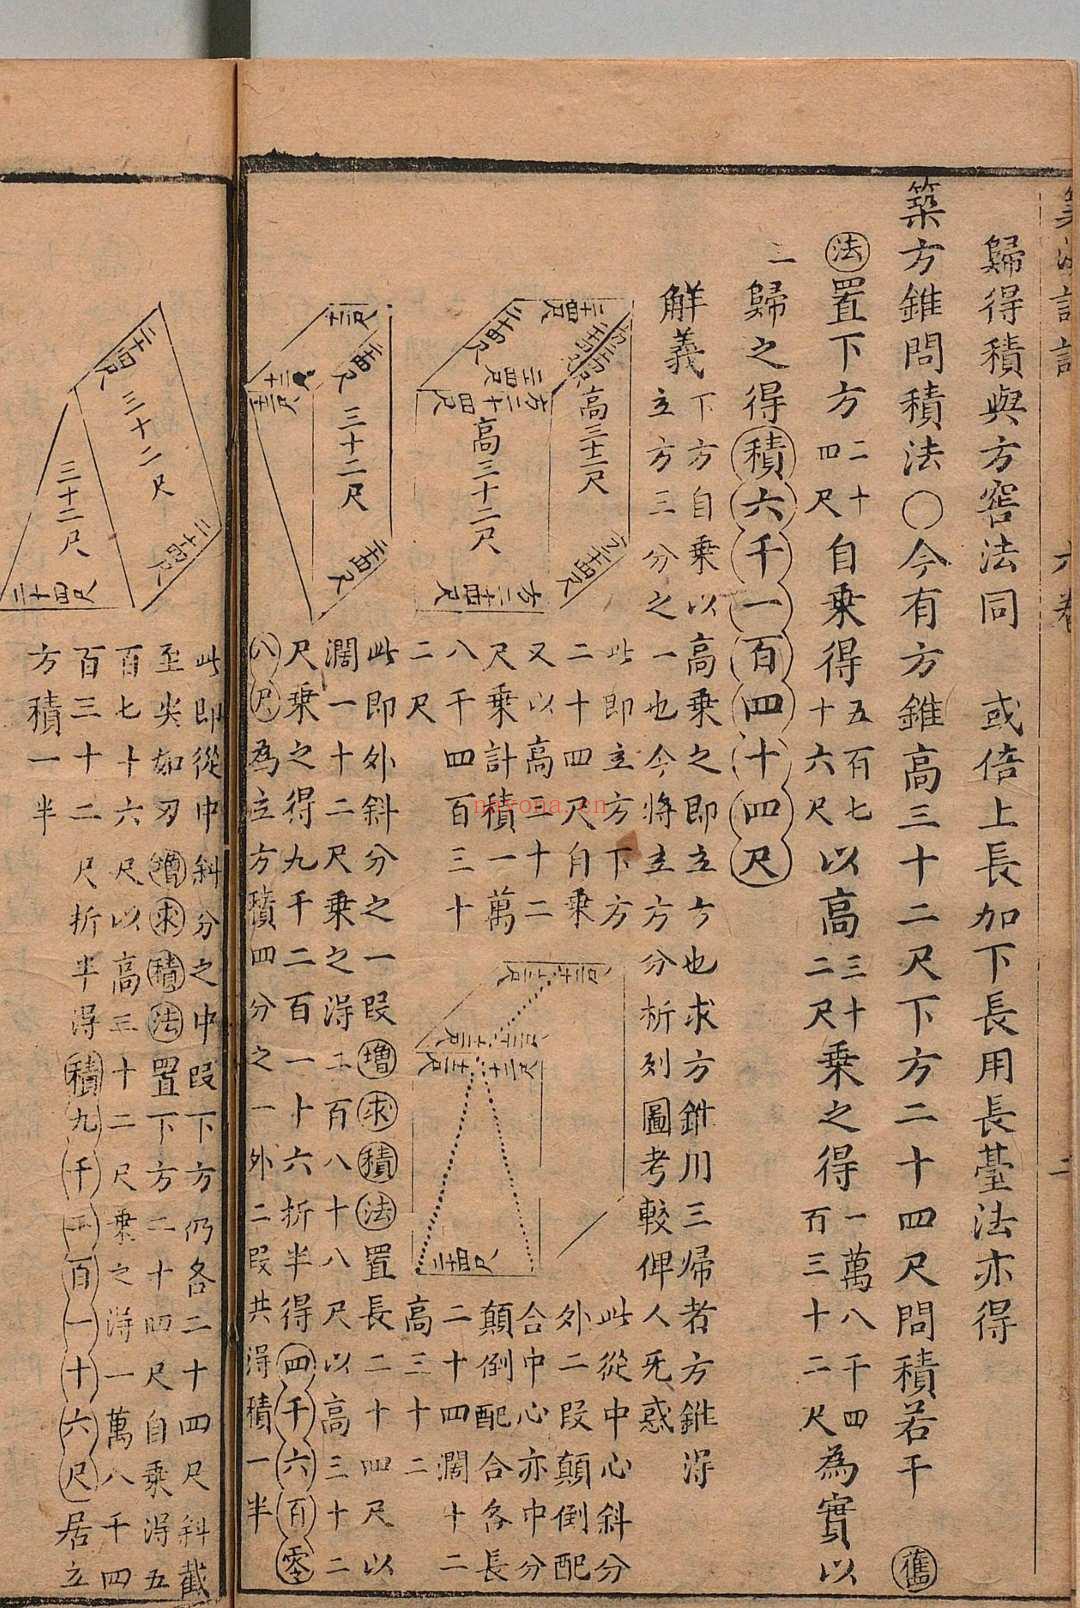 歸得積與方窖法同　或倍上長加下長用長臺法亦得
築方錐問積法〇今有方錐高三十二尺下方二十四尺問積若干　舊
法置下方二十四尺自乘得五百七十六尺以高三十二尺乘之得一萬八千四百三十二尺為實以
三歸之得積六千一百四十四尺
解義　下方自乘以高乘之即立方也求方錐用三歸者方錐得
立方三分之一也今將立方分析列圖考較俾人无惑
二十四尺
高三十二尺
二十四尺
方二十四尺
高三十二尺
方二十四尺
此即立方下方
二十四尺自乘
又以高三十二
尺乘計積一萬
八千四百三十
二尺
此從中心斜分
外二段顛倒配
合中心亦中分
顛倒配合各長
二十四濶十二
高三十二
三十二尺
此即外斜分之一段增求積法置長二十四尺以
濶一十二尺乘之得二百八十八尺以高三十二
尺乘之得九千二百一十六折半得四千六百零
八尺為立方積四分之一外二段共得積一半
二十四尺
三十二尺
三十二尺
二十四尺
此即從中斜分之中段下方仍各二十四尺斜截
至尖如刃增求積法置下方二十四尺自乘得五
百七十六尺以高三十二尺乘之得一萬八千四
百三十二尺折半得積九千二百一十六尺居立
方積一半
nayona.cn